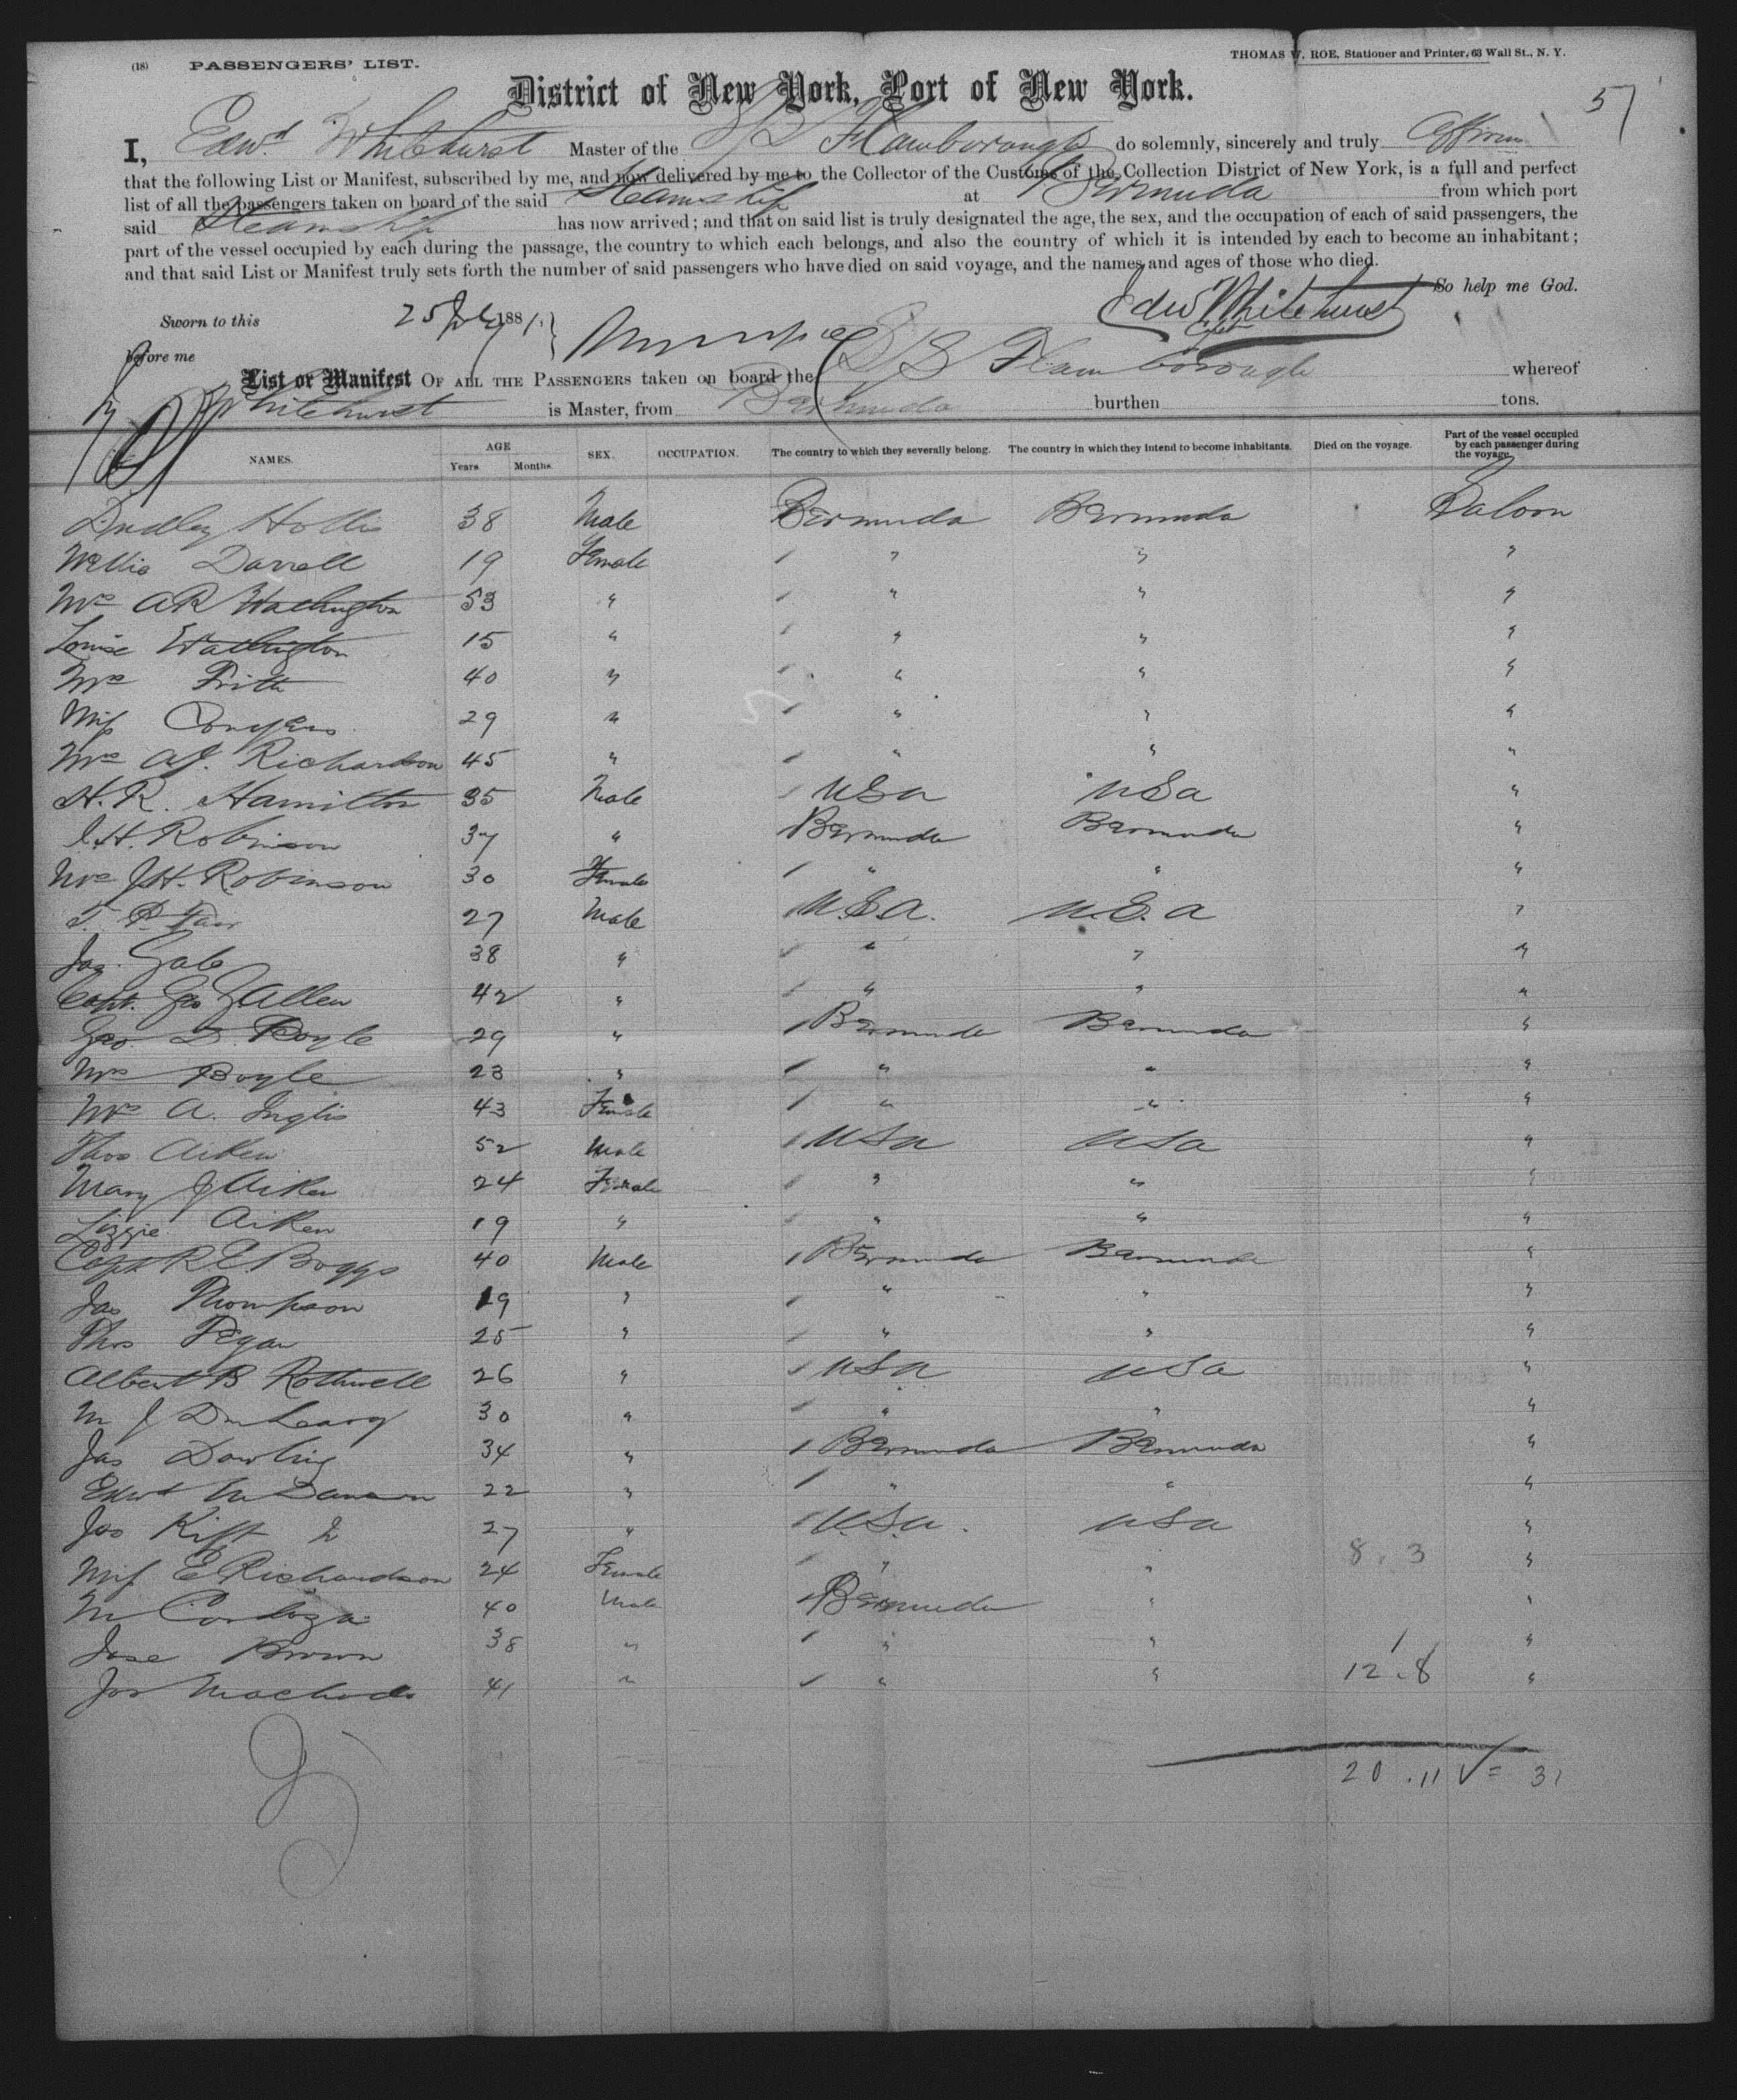 (18) PASSENGERS' LIST.
THOMAS W. ROE, Stationer and Printer, 63 Wall St., N. Y.
District of New York, Port of New York.
57
I, Edwd Whitehurst Master of the S/S Flamborough do solemnly, sincerely and truly affirm
that the following List or Manifest, subscribed by me, and now delivered by me to the Collector of the Customs of the Collection District of New York, is a full and perfect
list of all the passengers taken on board of the said Steamship at Bermuda from which port
said Steamship has now arrived; and that on said list is truly designated the age, the sex, and the occupation of each of said passengers, the
part of the vessel occupied by each during the passage, the country to which each belongs, and also the country of which it is intended by each to become an inhabitant;
and that said List or Manifest truly sets forth the number of said passengers who have died on said voyage, and the names and ages of those who died.
So help me God.
Sworn to this 25 July 1881. Edw Whitehurst
before me
List or Manifest OF ALL THE PASSENGERS taken on board the S/S Flamborough whereof
Whitehurst is Master, from Bermuda burthen tons.
NAMES. AGE Years Months. SEX. OCCUPATION. The country to which they severally belong. The country in which they intend to become inhabitants. Died on the voyage. Part of the vessel occupied by each passenger during the voyage.
Dudley Hollis 38 Male Bermuda Bermuda Saloon
Darrell 19 Female " " "
Mrs AR Watlington 53 " " " "
Louise Watlington 15 " " " "
Mrs Frith 40 " " " "
Miss Conyers 29 " " " "
Mrs AJ. Richardson 45 " " " "
H. R. Hamilton 35 Male USA USA "
J.H. Robinson 37 " Bermuda Bermuda "
Mrs JH. Robinson 30 Female " " "
27 Male U.S.A. U.S.A "
Jas. Gale 38 " " " "
Capt. Geo Allen 42 " " " "
Geo. D. Boyle 29 " Bermuda Bermuda "
Mrs Boyle 23 " " " "
Mrs A. Inglis 43 Female " " "
Thos Aiken 52 Male USA USA "
Mary J Aiken 24 Female " " "
Lizzie Aiken 19 " " " "
Capt R E Boggs 40 Male Bermuda Bermuda "
Jas Thompson 19 " " " "
Thos 25 " " " "
Albert B Rothwell 26 " USA USA "
M J 30 " " " "
Jas Dowling 34 " Bermuda Bermuda "
Edwd 22 " " " "
Jos Kift 27 " U.S.A. USA "
Miss E Richardson 24 Female " " 8.3 "
M Cordoza 40 Male Bermuda " "
Jose Brown 38 " " " "
Jos Machado 41 " " " 12.8 "
20.11 = 31